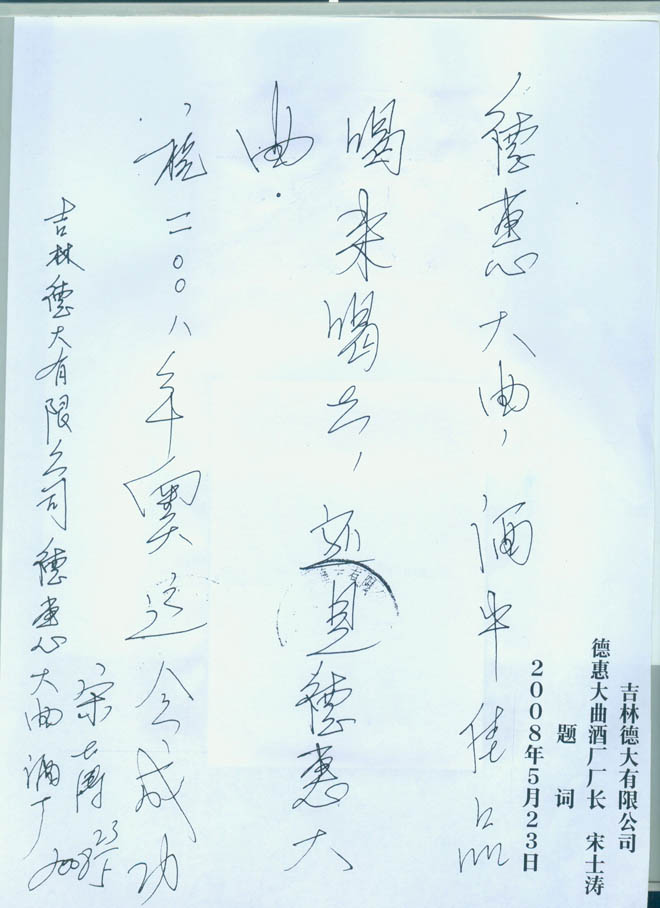 吉林德大有限公司
德惠大曲酒厂厂长 宋士涛
题词
2008年5月23日
德惠大曲，酒中佳品
喝来喝去，还是德惠大
曲.
祝二〇〇八年奥运会成功
吉林德大有限公司德惠大曲酒厂
宋士涛
2008 23/5